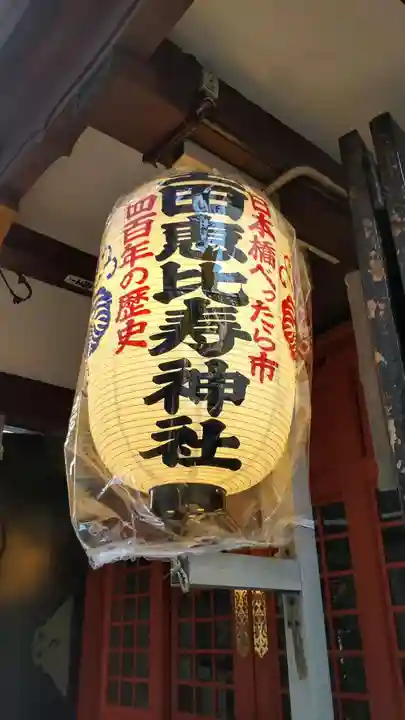 日本橋べったら市
寳田恵比寿神社
四百年の歴史